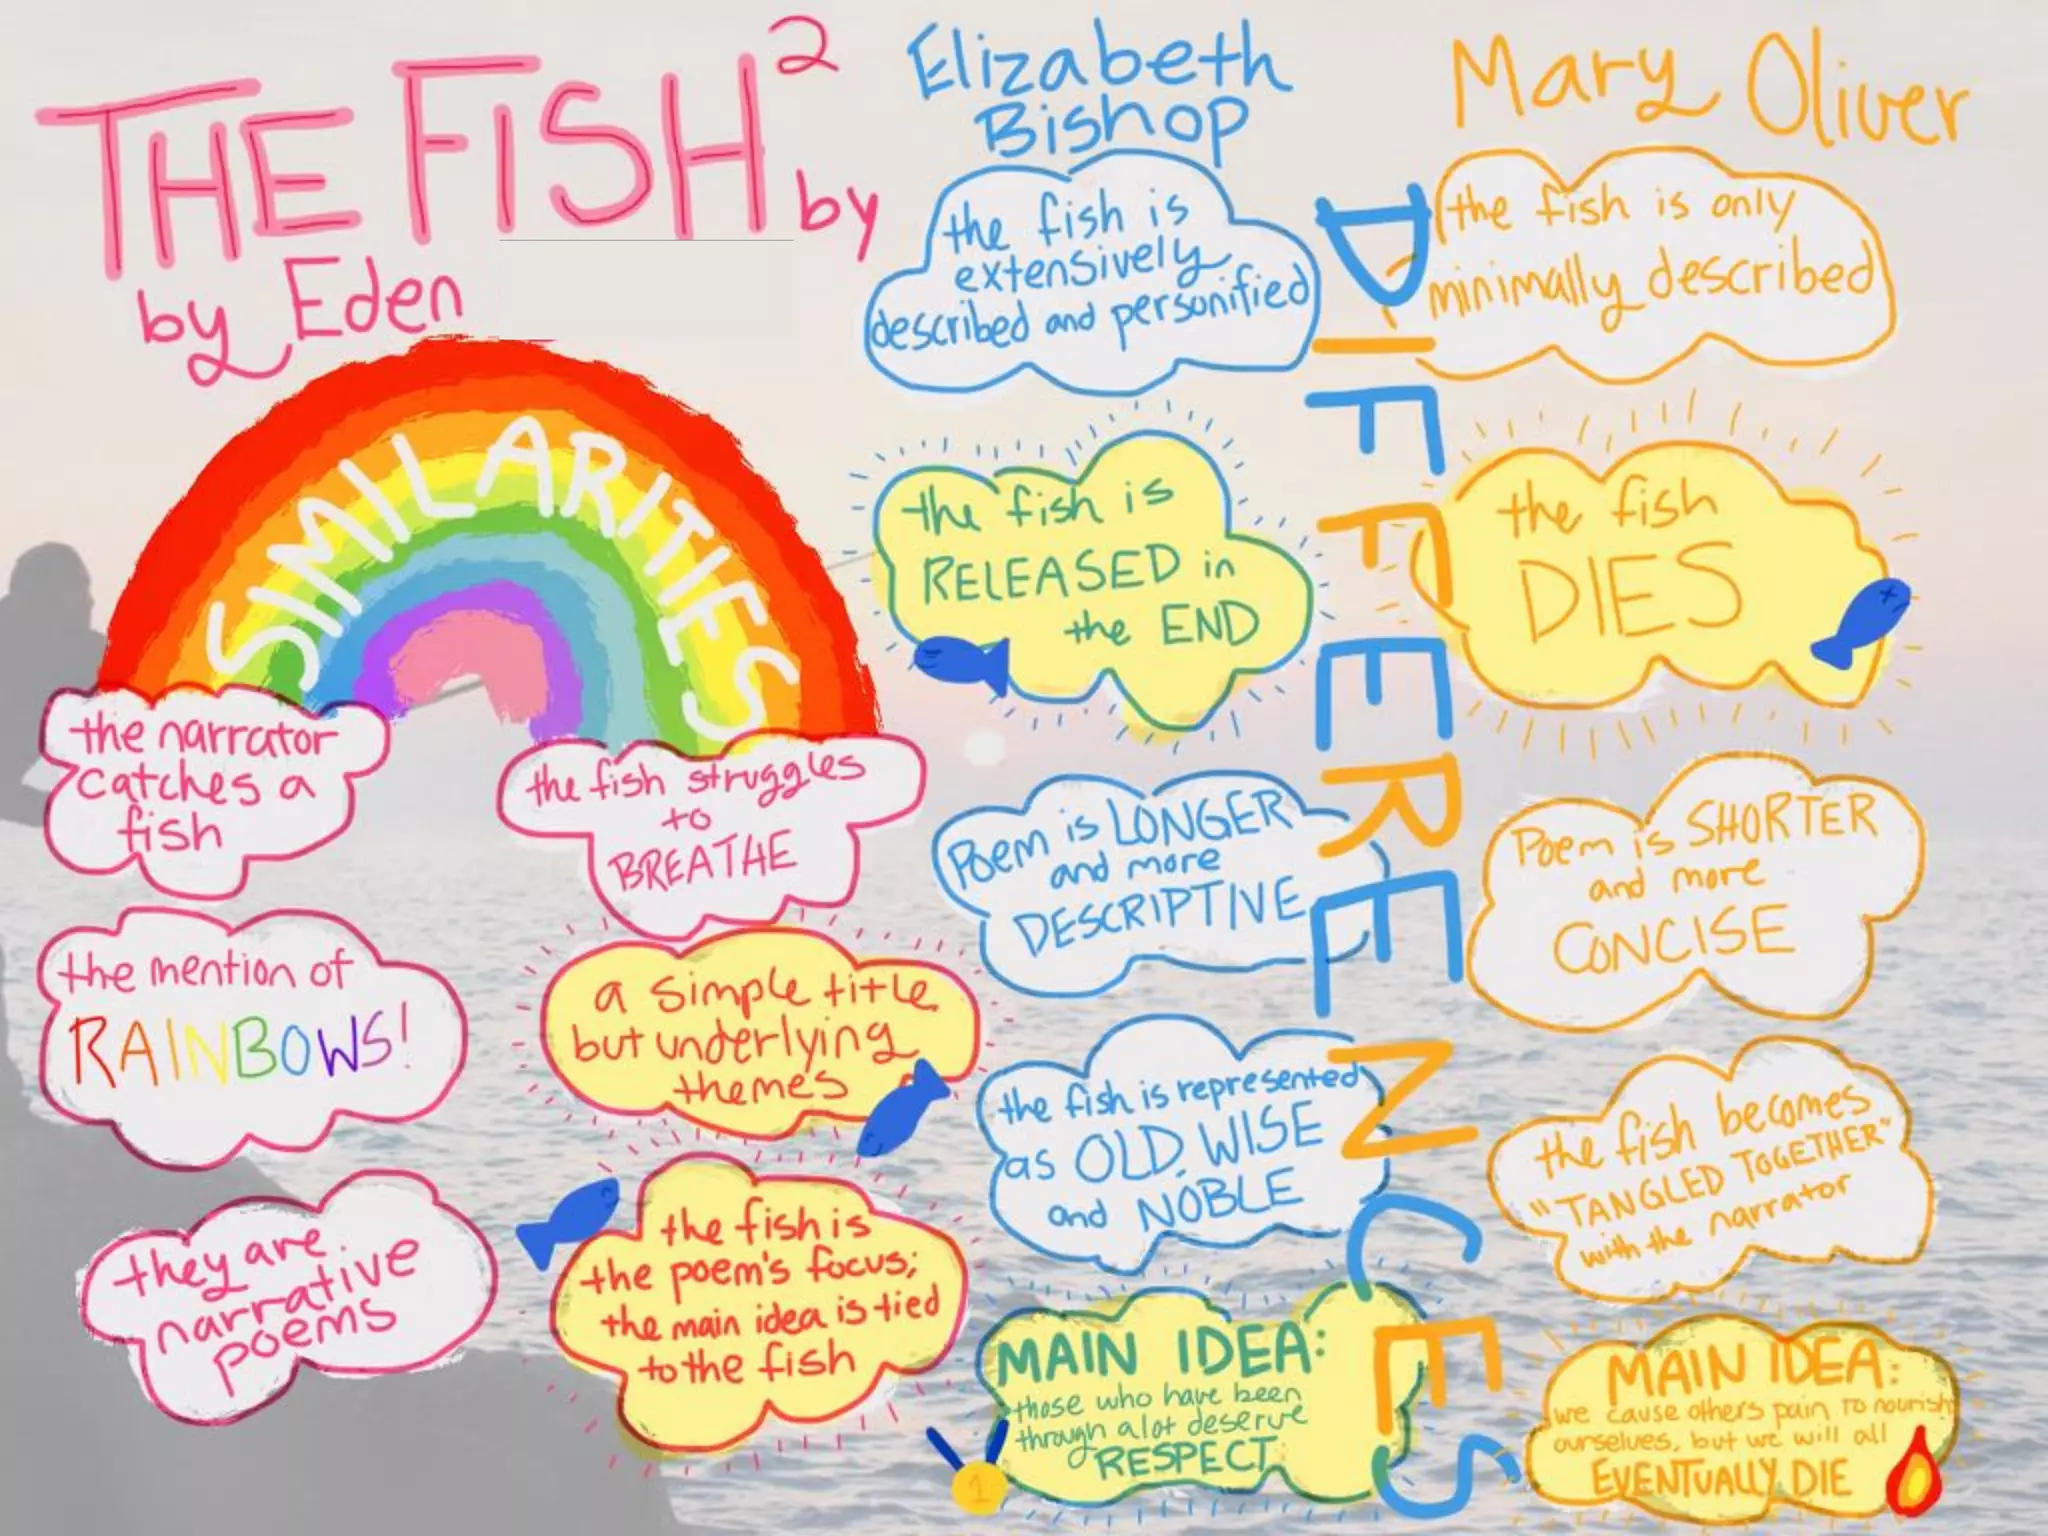 THE FISH²
by Eden
by
Elizabeth
Bishop
Mary Oliver
SIMILARITIES
the narrator
catches a
fish
the fish struggles
to
BREATHE
the mention of
RAINBOWS!
a simple title
but underlying
themes
they are
narrative
poems
the fish is
the poem's focus;
the main idea is tied
to the fish
DIFFERENCES
the fish is
extensively
described and personified
the fish is
RELEASED in
the END
Poem is LONGER
and more
DESCRIPTIVE
the fish is represented
as OLD, WISE
and NOBLE
MAIN IDEA:
those who have been
through alot deserve
RESPECT
1
the fish is only
minimally described
the fish
DIES
Poem is SHORTER
and more
CONCISE
the fish becomes
"TANGLED TOGETHER"
with the narrator
MAIN IDEA:
we cause others pain to nourish
ourselves, but we will all
EVENTUALLY DIE